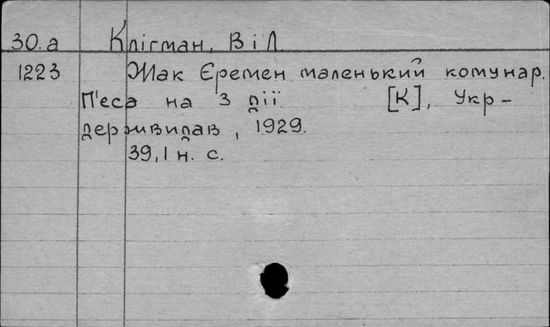 30.а Клігман, В і Л
1223 Жак Єремен маленький комунар.
П'еса на 3 дії [К], Укр-
держвидав, 1929.
39,1 н. с.